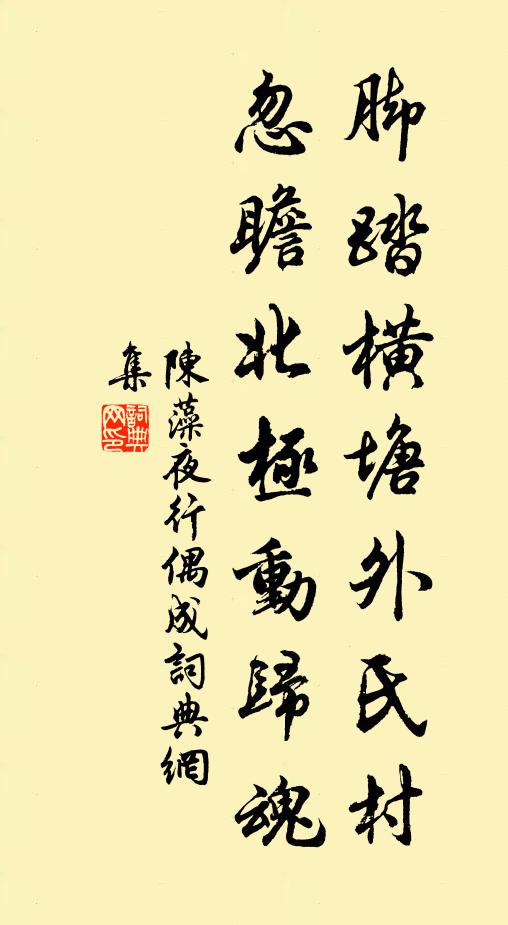 脚踏橫塘外民村
忽瞻北極動歸魂
陳藻夜行偶成詞典網
集
詞典
网印